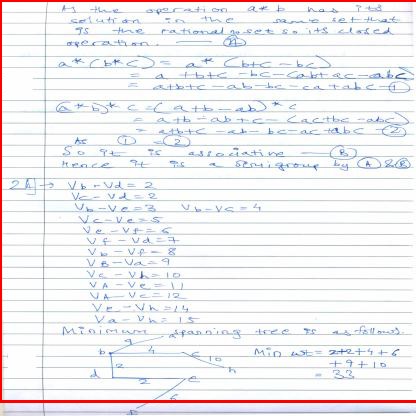 As the operation a*b has its
solution in the same set that
is the rational set so its closed
operation. — Ⓐ
a*(b*c) = a*(b+c-bc)
= a+b+c-bc-(ab+ac-abc)
= a+b+c-ab-bc-ca+abc-①
(a*b)*c = (a+b-ab)*c
= a+b-ab+c-(ac+bc-abc)
= a+b+c-ab-bc-ac+abc-②
As ① = ②
So it is associative — Ⓑ
Hence it is a semigroup by Ⓐ & Ⓑ
2A] → Vb-Vd=2
Vc-Vd=2
Vb-Ve=3 Vb-Vc=4
Vc-Ve=5
Ve-Vf=6
Vf-Vd=7
Vb-Vf=8
VB-Va=9
Vc-Vh=10
VA-Ve=11
VA-Vc=12
Ve-Vh=14
Va-Vh=15
Minimum spanning tree is as follows.
9
b 4 c 10 h
2
d 2 e
6
Min wt = 2+2+4+6
+9+10
= 33